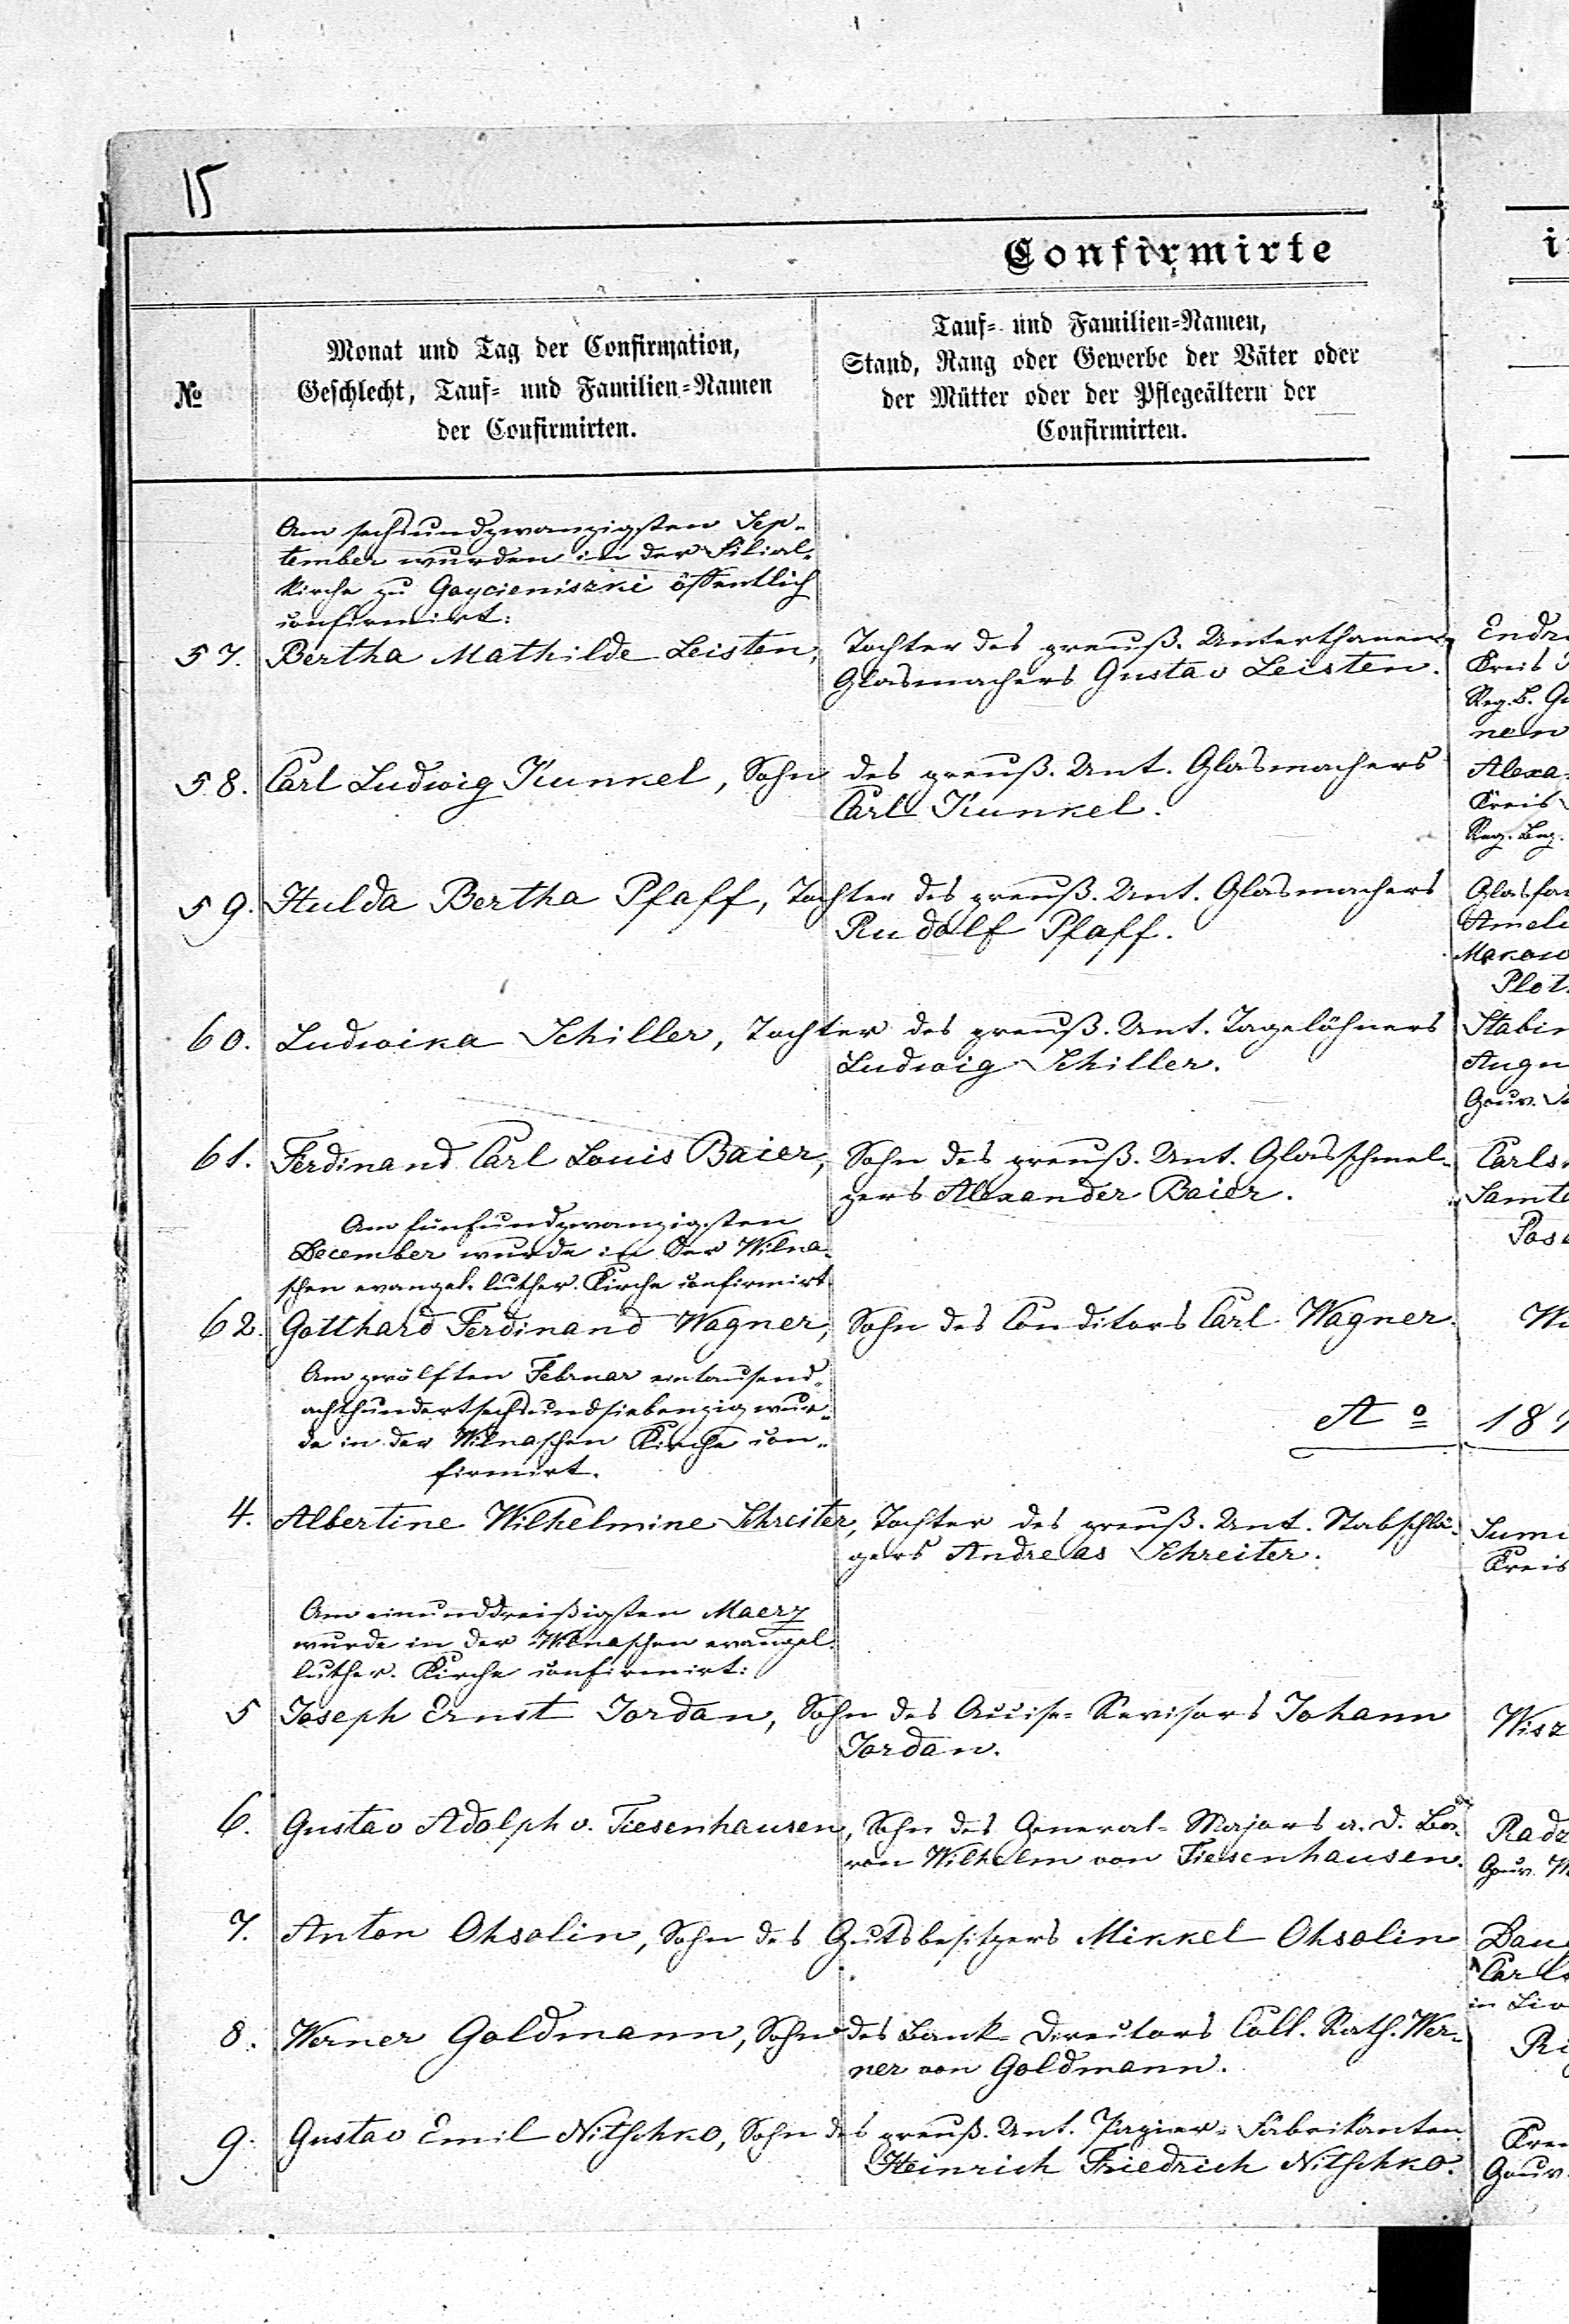 15
Confirmirte
№
Monat und Tag der Confirmation,
Geschlecht, Tauf- und Familien-Namen
der Confirmirten.
Tauf- und Familien-Namen,
Stand, Rang oder Gewerbe der Väter oder
der Mütter oder der Pflegeältern der
Confirmirten.
Am sechsundzwanzigsten Sep-
tember wurden in der Filial-
kirche zu Gaycieniszki öffentlich
confirmirt:
57. Bertha Mathilde Leisten, Tochter des preuß. Unterthanen
Glasmachers Gustav Leisten.
Kreis
Reg. B.
nen
58. Carl Ludwig Kunkel, Sohn des preuß. Unt. Glasmachers
Carl Kunkel.
Alexa-
Kreis
Reg. Bez.
59. Hulda Bertha Pfaff, Tochter des preuß. Unt. Glasmachers
Rudolf Pfaff.
Glasfa
Ameli
Makow
Plot
60. Ludwika Schiller, Tochter des preuß. Unt. Tagelöhners
Ludwig Schiller.
Stabin
Augu
Gouv.
61. Ferdinand Carl Louis Baier, Sohn des preuß. Unt. Glasschmel-
zers Alexander Baier.
Carls
Samte
Pose
Am fünfundzwanzigsten
December wurde in der Wilna-
schen evangel. luther. Kirche confirmirt
62. Gotthard Ferdinand Wagner, Sohn des Conditors Carl Wagner.
Wi
Am zwölften Februar eintausend-
achthundertsechsundsiebenzig wur-
de in der Wilnaschen Kirche con-
firmirt.
Ao 187
4. Albertine Wilhelmine Schreiter, Tochter des preuß. Unt. Stabschlä-
gers Andreas Schreiter.
Sumi
Kreis
Am einunddreißigsten Maerz
wurde in der Wilnaschen evangel.
luther. Kirche confirmirt:
5 Joseph Ernst Jordan, Sohn des Accise-Revisors Johann
Jordan.
Wisz
6. Gustav Adolph v. Tiesenhausen, Sohn des General-Majors a. D. Ba-
ron Wilhelm von Tiesenhausen.
Radz
Gouv.
7. Anton Ohsolin, Sohn des Gutsbesitzers Mikkel Ohsolin
Carls
in Liv
8. Werner Goldmann, Sohn des Bank-Directors Coll. Rath. Wer-
ner von Goldmann.
Ri
9. Gustav Emil Nitschko, Sohn des preuß. Unt. Papier-Fabrikanten
Heinrich Friedrich Nitschko.
Gouv.